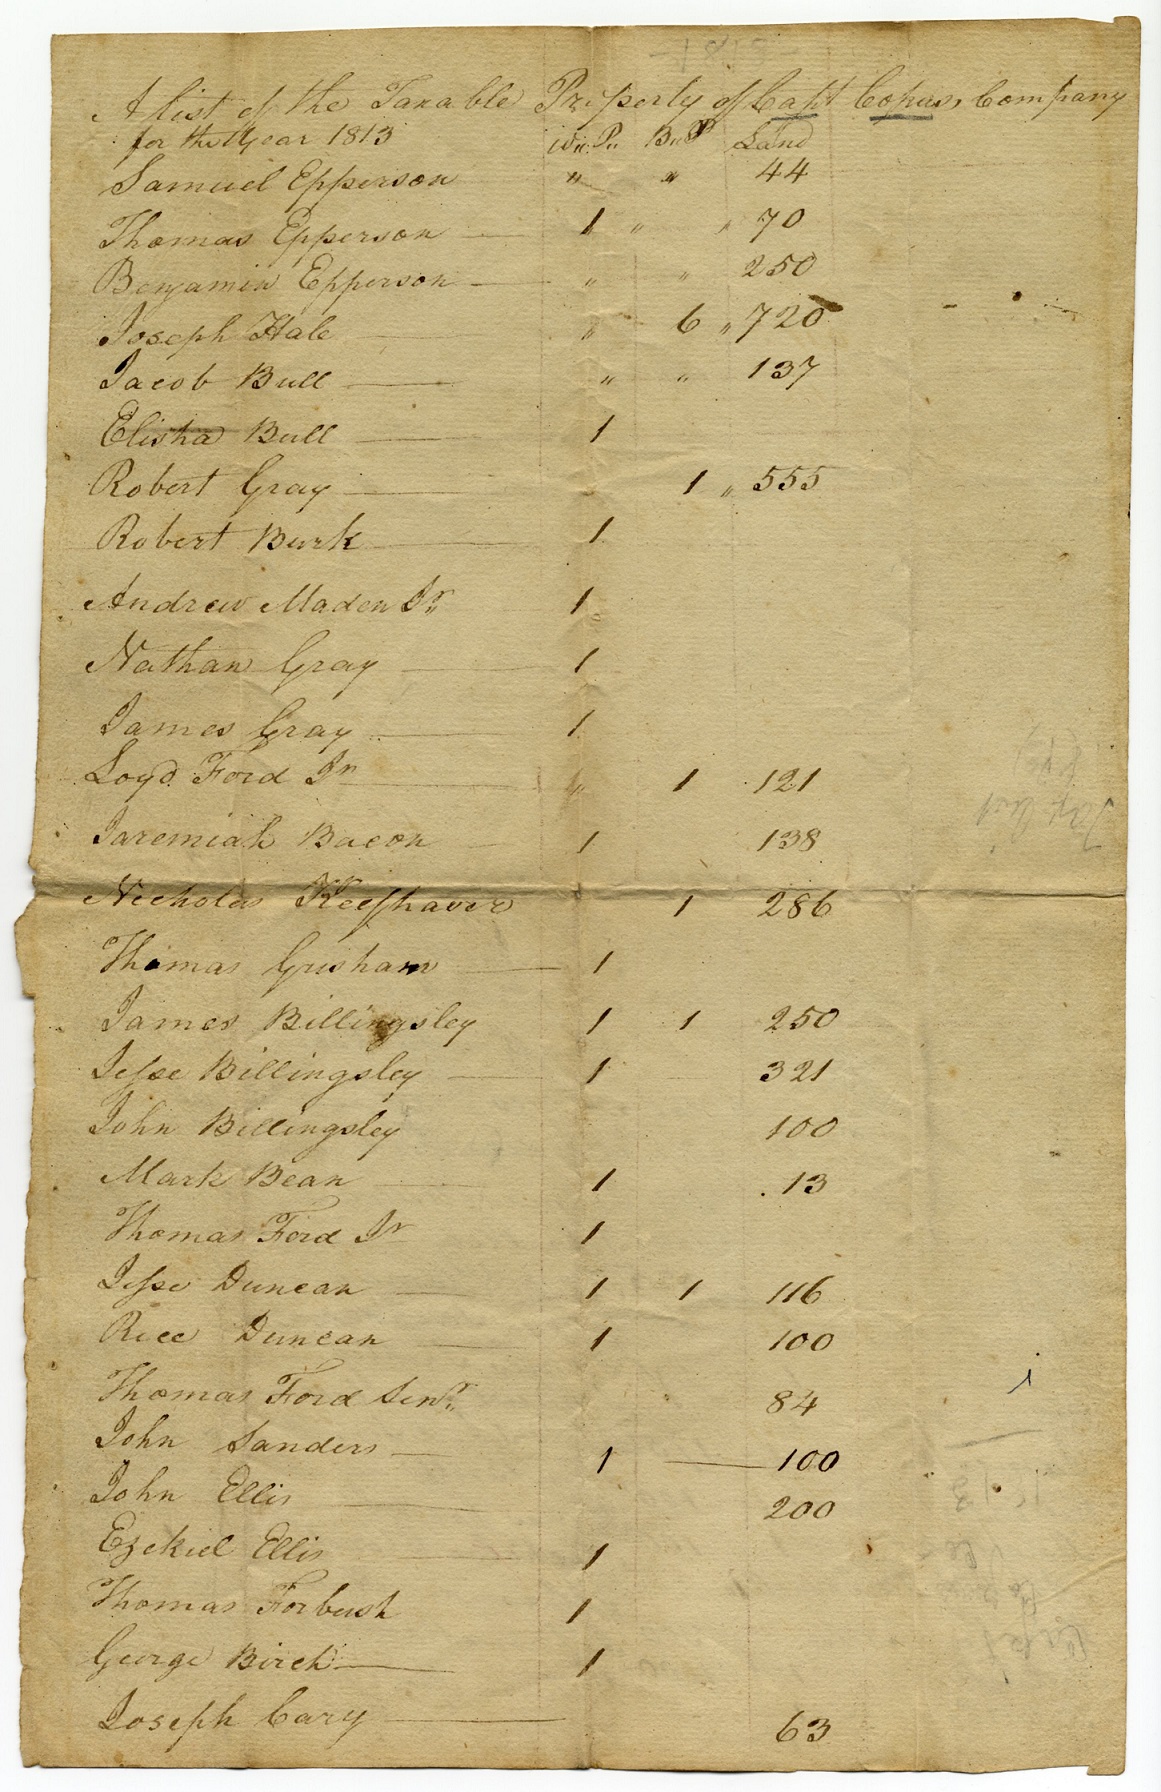 A list of the Taxable Property of Capt Copass Company
for the Year 1813 W,, P,, B,, P Land
Samuel Epperson " " 44
Thomas Epperson — 1 " " 70
Benjamin Epperson — " " 250
Joseph Hale — " 6 " 720
Jacob Bull — " " 137
Elisha Bull — 1
Robert Gray — 1 " 555
Robert Burk — 1
Andrew Maden Jr,, 1
Nathan Gray — 1
James Gray — 1
Loyd Ford Jn — " 1 121
Jaremiah Bacon — 1 138
Necholas Keefhaver 1 286
Thomas Grisham — 1
James Billingsley 1 1 250
Jesse Billingsley — 1 321
John Billingsley 100
Mark Bean — 1 13
Thomas Ford Jr 1
Jesse Duncan — 1 1 116
Rice Duncan — 1 100
Thomas Ford Senr,, 84
John Sanders — 1 — 100
John Ellis — 200
Ezekiel Ellis — 1
Thomas Forbush 1
George Birch — 1
Joseph Cary — 63